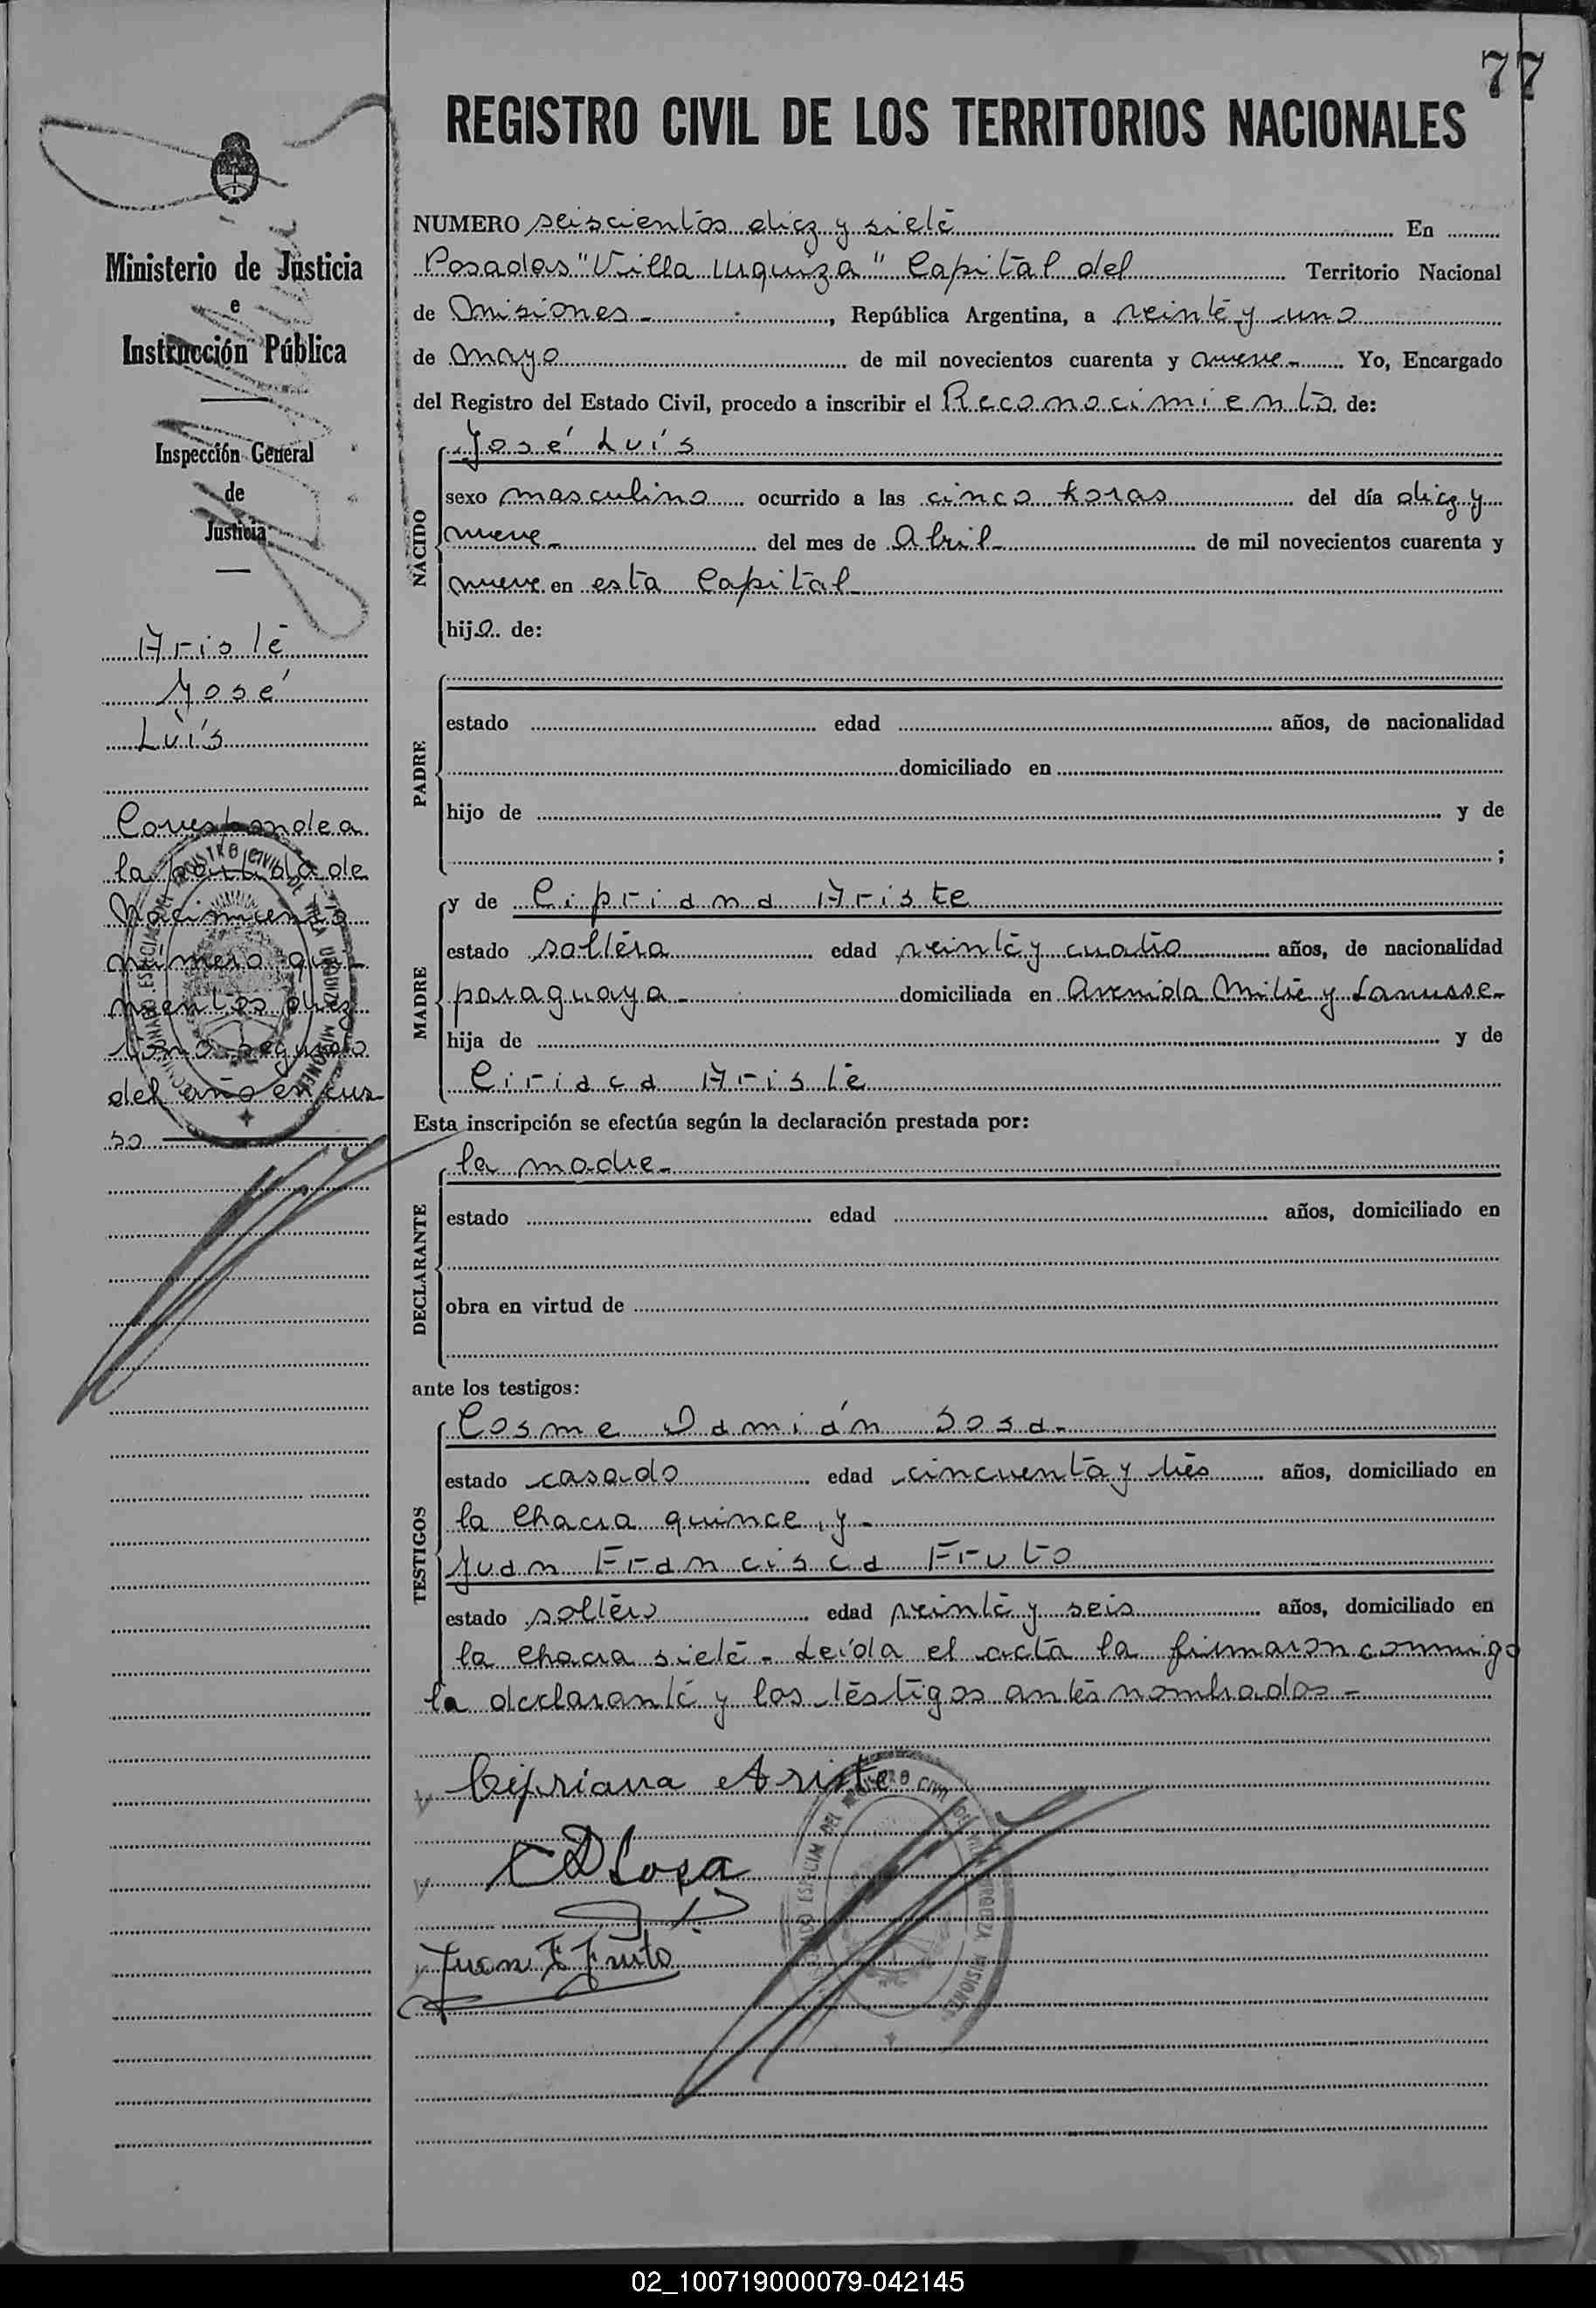 77
REGISTRO CIVIL DE LOS TERRITORIOS NACIONALES
Ministerio de Justicia
e
Instrucción Pública
Inspección General
de
Justicia
Ariste
José
Luís
Corresponde a
la partida de
Nacimiento
número qui-
nientos diez
tomo segundo
del año en cur
so
NUMERO seiscientos diez y siete En
Posadas "Villa Urquiza" Capital del Territorio Nacional
de Misiones - , República Argentina, a veinte y uno
de Mayo de mil novecientos cuarenta y nueve - Yo, Encargado
del Registro del Estado Civil, procedo a inscribir el Reconocimiento de:
NACIDO
José Luís
sexo masculino ocurrido a las cinco horas del día diez y
nueve - del mes de Abril - de mil novecientos cuarenta y
nueve en esta Capital
hijo de:
PADRE
estado edad años, de nacionalidad
domiciliado en
hijo de y de
;
MADRE
y de Cipriana Ariste
estado soltera edad veinte y cuatro años, de nacionalidad
paraguaya - domiciliada en Avenida Mitre y Lanusse -
hija de y de
Ciriaca Ariste
Esta inscripción se efectúa según la declaración prestada por:
DECLARANTE
la madre -
estado edad años, domiciliado en
obra en virtud de
ante los testigos:
TESTIGOS
Cosme Damián Sosa -
estado casado edad cincuenta y tres años, domiciliado en
la chacra quince, y -
Juan Francisca Fruto
estado soltero edad veinte y seis años, domiciliado en
la chacra siete - Leída el acta la firmaron conmigo
la declarante y los testigos antes nombrados -
Cipriana Ariste
CDSosa
Juan F Fruto
02_100719000079-042145